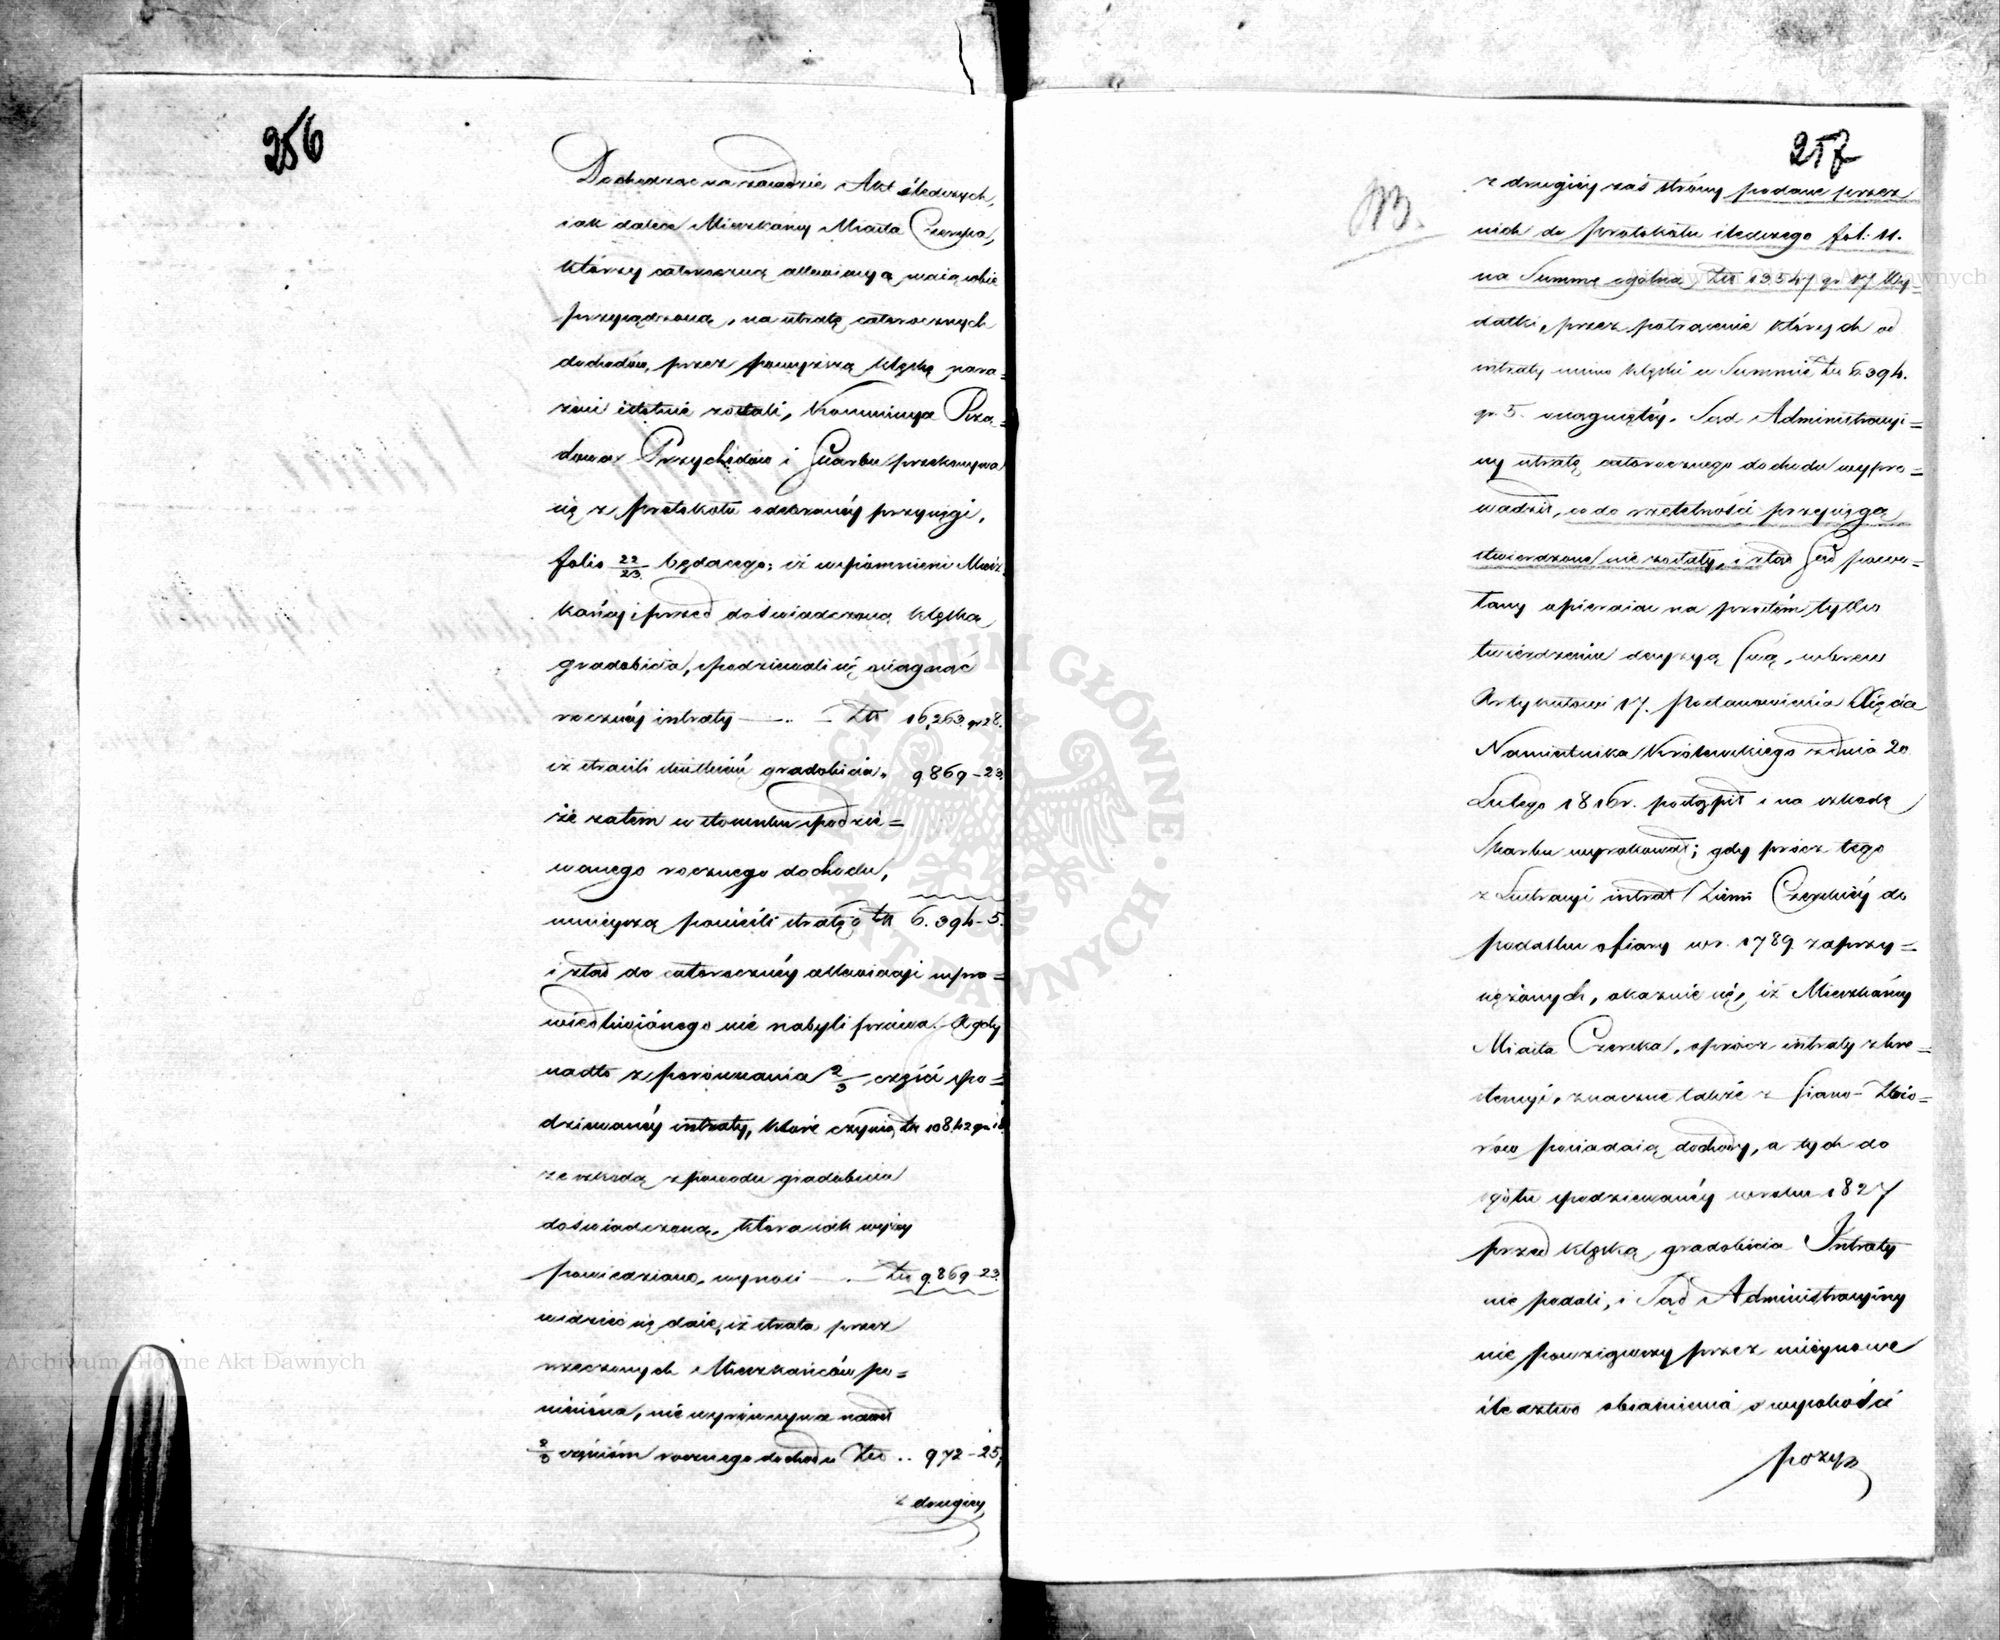 256
Dochodząc na zasadzie Akt śledczych,
iak dalece Mieszkańcy Miasta Czerska,
którzy całoroczną allewiacyą maią sobie
przysądzoną, na utratę całorocznych
dochodów, przez powyższą klęskę nara=
żeni istotnie zostali, Kommissya Rzą=
dowa Przychodów i Skarbu przekonywa
się z protokołu odebranéy przysięgi,
folio 22/23 będącego; iż wspomnieni Miesz=
kańcy przed doświadczoną klęską
gradobicia, spodziewali się osiągnąć
rocznéy intraty — Złt 16,263 gr 28.
iż stracili skutkiem gradobicia. 9869-23.
że zatem w stosunku spodzie=
wanego rocznego dochodu,
mnieyszą ponieśli stratę o Złt 6.394-5.
i ztąd do całorocznéy allewiacyi uspra=
wiedliwionego nie nabyli prawa. A gdy
nadto z porównania 2/3 części spo=
dziewanéy intraty, które czynią złt 10842 gr
ze szkodą z powodu gradobicia
doświadczoną, która iak wyżey
powiedziano, wynosi — Złt 9.869-23.
widzieć się daie, iż strata przez
rzeczonych Mieszkańców po=
niesiona, nie wyrównywa nawet
2/3 częściom rocznego dochodu Złt .. 972-25,
z drugiey
257
NB.
z drugiéy zaś strony podane przez
nich do protokołu śledczego fol: 11.
na Summę ogólną Złt 13547 gr 17 Wy=
datki, przez potrącenie których od
intraty mimo klęski w Summie Złt 6394.
gr. 5. osiągniętéy, Sąd Administracyi=
ny utratę całorocznego dochodu wypro=
wadził, co do rzetelności przysięgą
stwierdzone nie zostały, i ztąd Sąd powo=
łany opieraiąc na prostém tylko
twierdzeniu decyzyą swą, wbrew
Artykułowi 17. Postanowienia Xięcia
Namiestnika Królewskiego z dnia 20
Lutego 1816 r. postąpił i na szkodę
Skarbu wyrokował; gdy prócz tego
z Lustracyi intrat Ziemi Czerskiéy do
podatku ofiary w r. 1789 zaprzy=
siężonych, okazuie się, iż Mieszkańcy
Miasta Czerska, oprócz intraty z kre=
stencyi, znaczne także z siano-Zbio=
rów posiadaią dochody, a tych do
ogółu spodziewanéy w roku 1827
przed klęską gradobicia Intraty
nie podali, i Sąd Administracyiny
nie powziąwszy przez mieyscowe
śledztwo obiaśnienia o wysokości
pozyc
Archiwum Główne Akt Dawnych
ARCHIWUM GŁÓWNE AKT DAWNYCH
Archiwum Główne Akt Dawnych